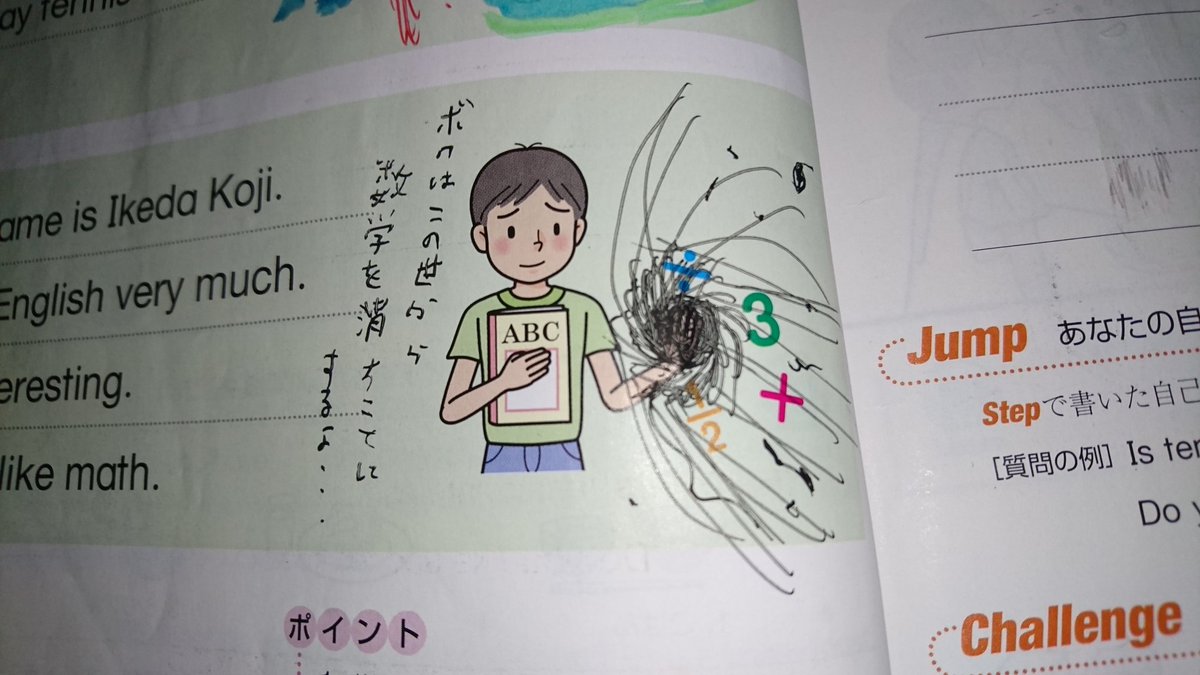 ay tennis
ame is Ikeda Koji.
English very much.
eresting.
like math.
ボクはこの世から
数学を消すことに
するよ・・・
ABC
÷
3
+
1/2
ポイント
Jump あなたの自
Stepで書いた自己
[質問の例] Is ten
Do y
Challenge